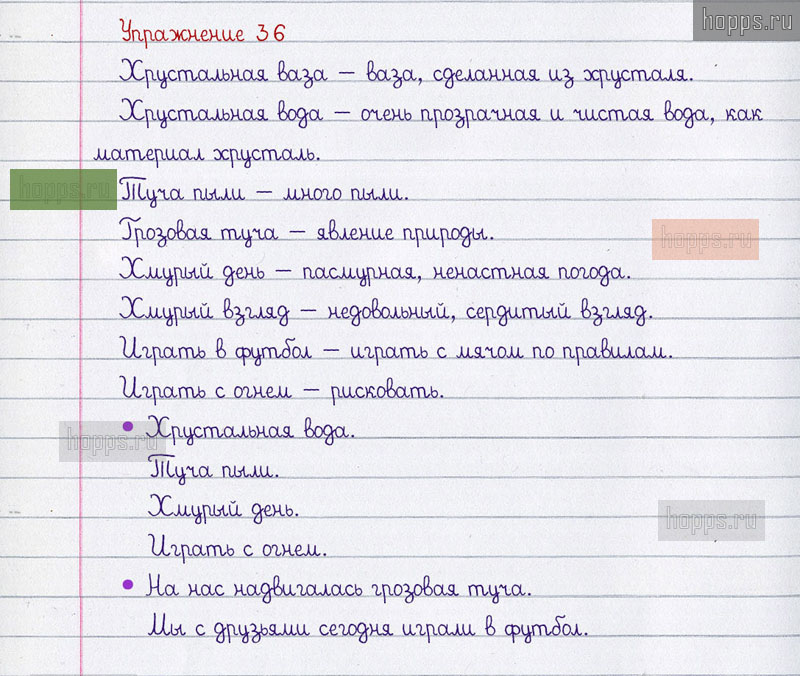 hopps.ru
Упражнение 36
Хрустальная ваза — ваза, сделанная из хрусталя.
Хрустальная вода — очень прозрачная и чистая вода, как
материал хрусталь.
hopps.ru
Туча пыли — много пыли.
Грозовая туча — явление природы.
hopps.ru
Хмурый день — пасмурная, ненастная погода.
Хмурый взгляд — недовольный, сердитый взгляд.
Играть в футбол — играть с мячом по правилам.
Играть с огнем — рисковать.
• Хрустальная вода.
hopps.ru
Туча пыли.
Хмурый день.
hopps.ru
Играть с огнем.
• На нас надвигалась грозовая туча.
Мы с друзьями сегодня играли в футбол.